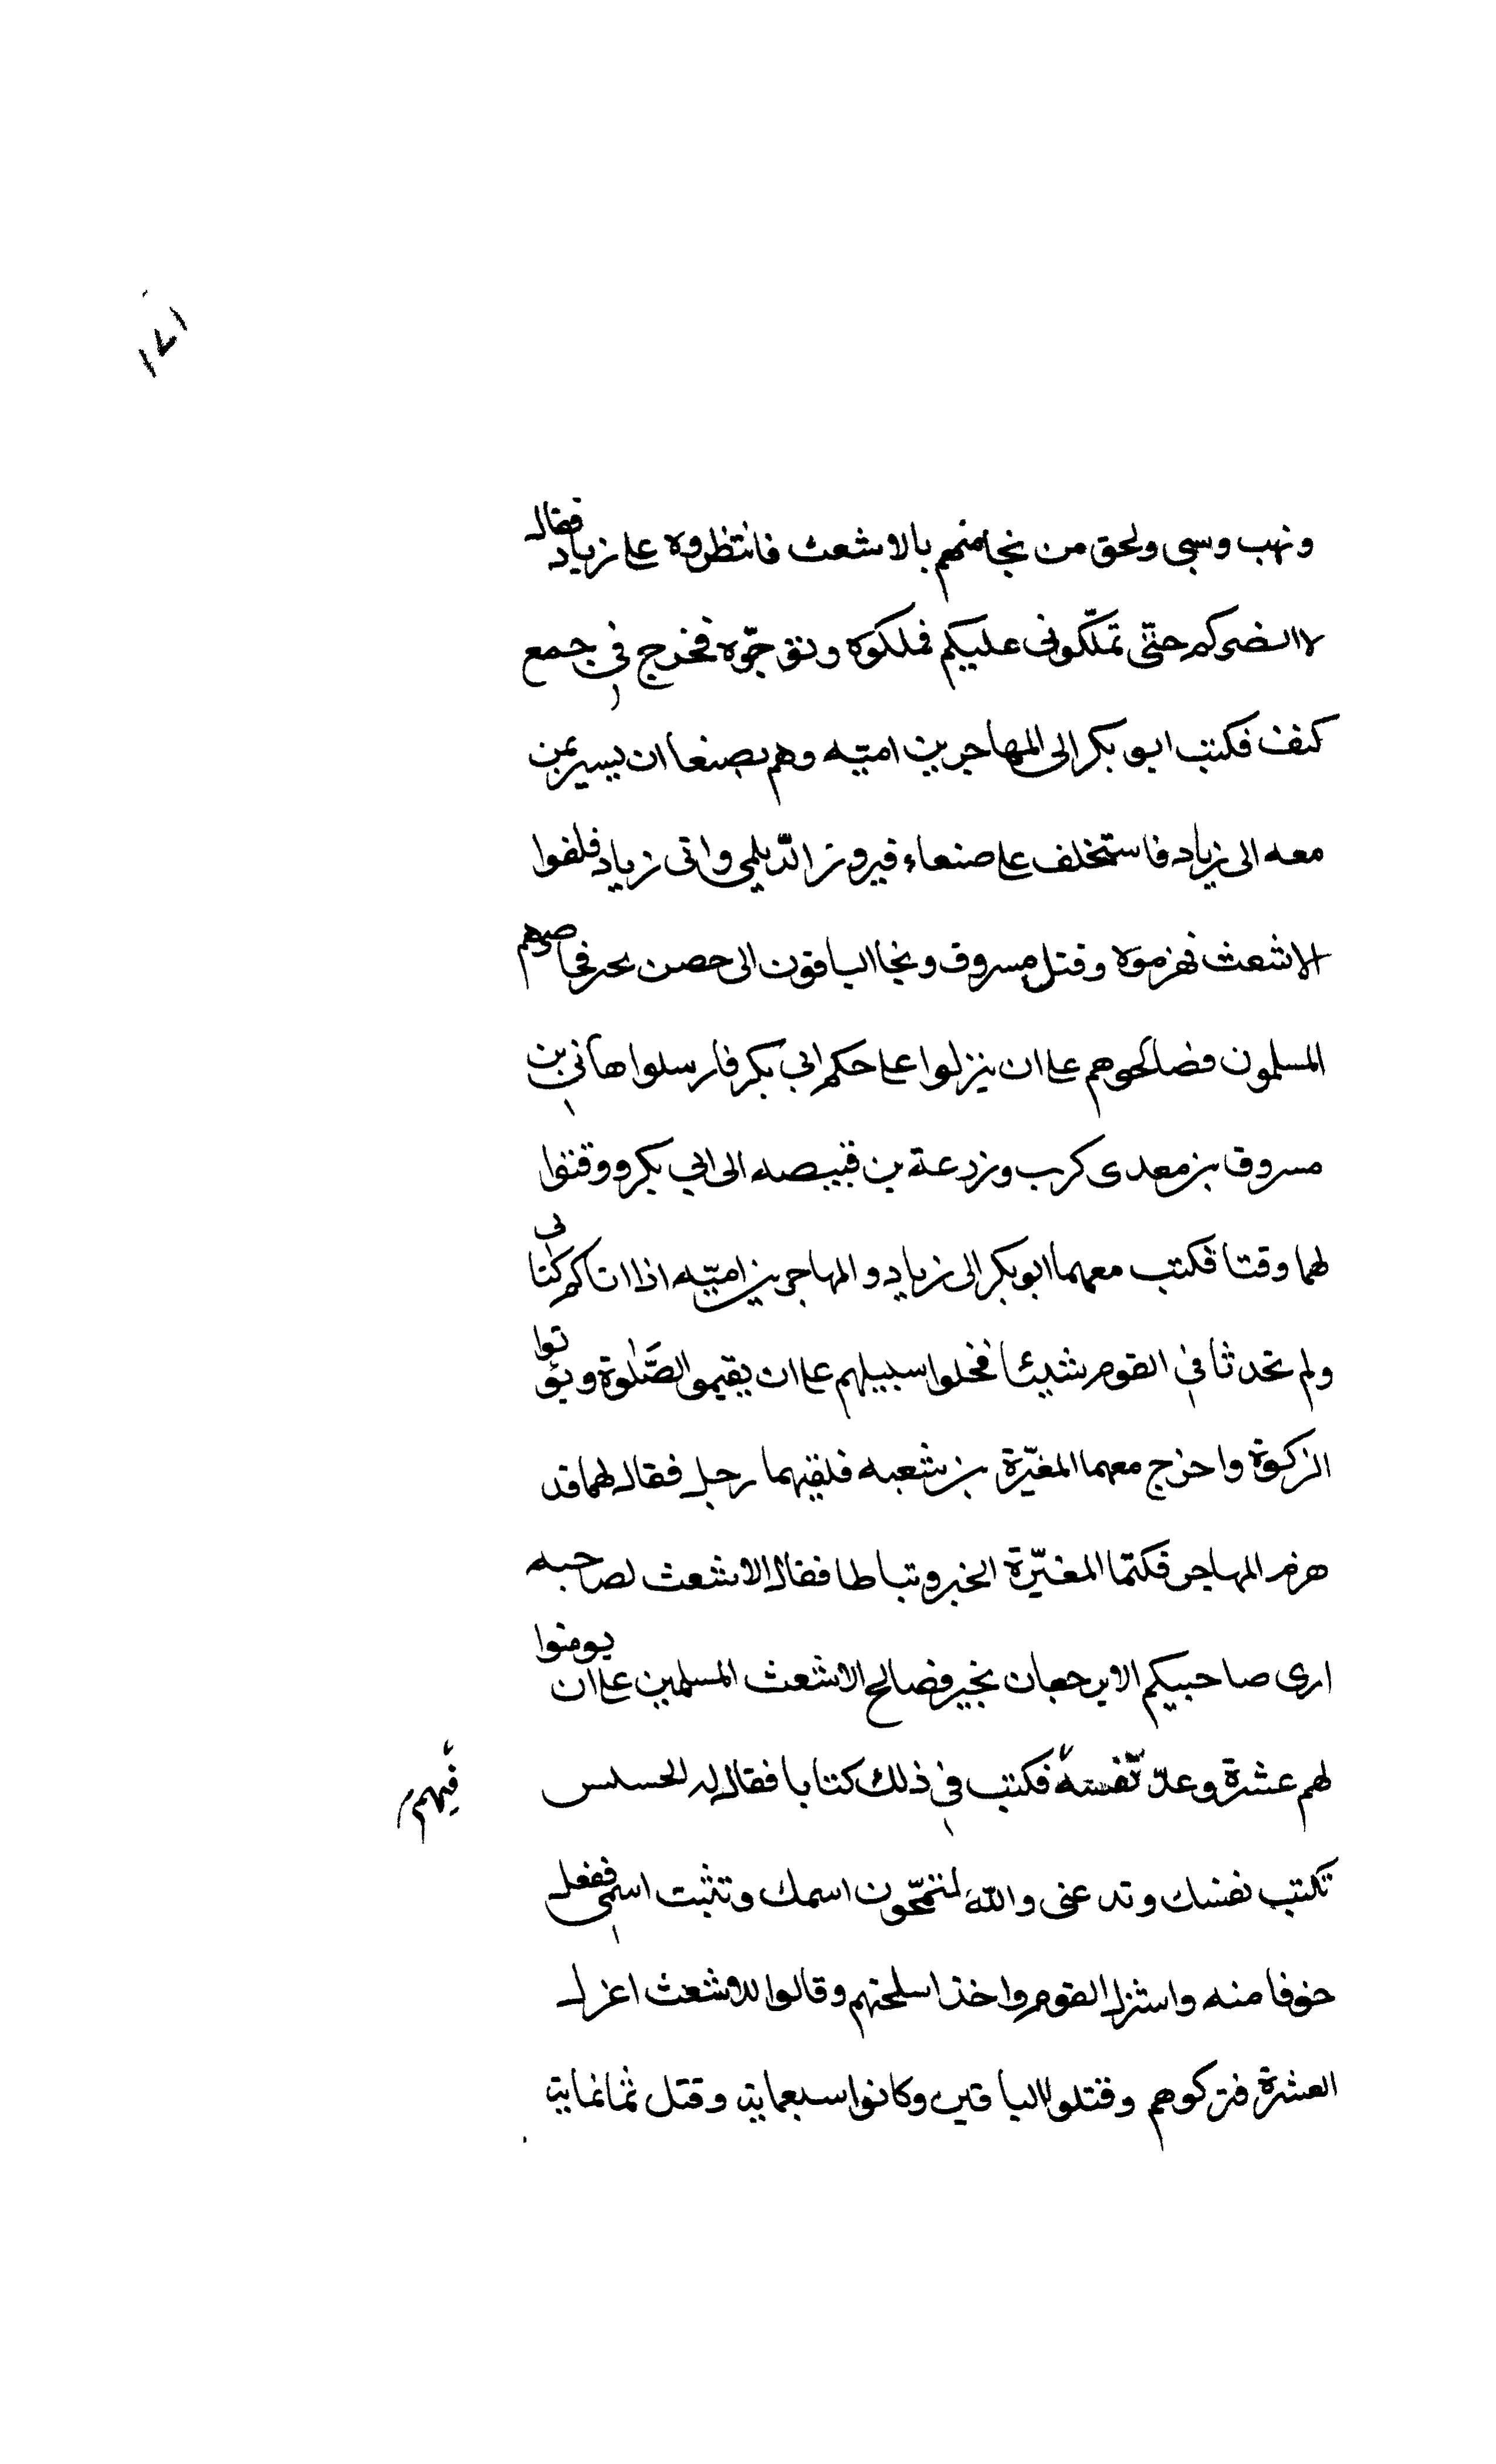 ١٧١
ونهب وسبى ولحق من نجا منهم بالاشعث فانتظروه على زياد فقال
لا انصركم حتى تملّكونى عليكم فملكوه وتوّجوه فخرج في جمع
كثف فكتب ابو بكر الى المهاجر بن اميّه وهم بصنعا ان يسير بمن
معه الى زياد فاستخلف على صنعاء فيروز الدّيلمى واتى زياد فلقوا
الاشعث فهزموه وقتل مسروق ونجا الباقون الى حصن فحاصروهم
المسلمون فصالحوهم على ان ينزلوا على حكم ابي بكر فارسلوا هانى بن
مسروق بن معدى كرب وزرعة بن قبيصه الى ابي بكر ووقتوا
لهما وقتا فكتب معهما ابو بكر الى زياد والمهاجر بن اميّه اذا اتاكم كتابى
ولم تحدثا في القوم شيئا فخلوا سبيلهم على ان يقيمو الصّلوة ويؤتوا
الزكوة واخرج معهما المغيّرة بن شعبه فلقيهما رجل فقال لهما قد
هزم المهاجر فكتما المغيّرة الخبر وتباطا فقال الاشعث لصاحبه
ارى صاحبيكم الا يرجعان بخير فصالح الاشعث المسلمين على ان يومنوا
لهم عشرة وعدّ نفسه فيهم فكتب في ذلك كتابا فقال له
تكتب نفسك وتدعنى والله لتمحّون اسمك وتثبت اسمى ففعل
خوفا منه واستنزل القوم واخذ اسلحتهم وقالوا للاشعث اعزل
العشرة فتركوهم وقتلوا الباقين وكانوا سبعماية وقتل ثمانماية